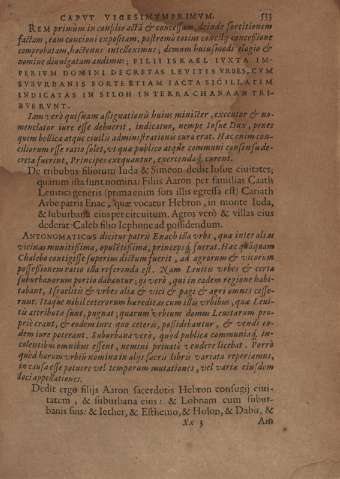 CAPVT VIGESIMVMPRIMVM. 533
REM primum in consilio actã & concessam, deinde sortitionem
factam, eam concioni expositam, postremò totius concilij concessione
comprobatam, hactenus intelleximus; demum huiusmodi elogio &
nomine diuulgatum audimus; FILII ISRAEL IVXTA IM-
PERIVM DOMINI DECRETAS LEVITIS VRBES, CVM
SVBVRBANIS SORTE ETIAM IACTA SIGILLATIM
INDICATAS IN SILOH IN TERRA CHANAAN TRI-
BVERVNT.
Iam verò quisnam assignationis huius minister, executor & no-
menclator iure esse debuerit, indicatur, nempe Iosue Dux, penes
quem bellicæ atque ciuilis administrationis cura erat. Hæc enim con-
ciliorum esse ratio solet, vt quæ publico atque communi consensu de-
creta fuerint, Principes exequantur, exercendaq́; curent.
De tribubus filiorum Iuda & Simeon dedit Iosue ciuitates,
quarum ista sunt nomina: Filijs Aaron per familias Caath
Leuitici generis (prima enim sors illis egressa est) Cariath
Arbe patris Enac, quæ vocatur Hebron, in monte Iuda,
& suburbana eius per circuitum. Agros verò & villas eius
dederat Caleb filio Iephune ad possidendum.
ANTONOMATICωS dicitur patris Enach illa vrbs, quæ inter alias
vicinas munitissima, opulētissima, princepsq́; fuerat. Hæc quãquam
Chalebo contigisse superius dictum fuerit, ad agrorum & vicorum
possessionem ratio illa referenda est. Nam Leuitis vrbes & certa
suburbanorum portio dabantur; at verò, qui in eadem regione habi-
tabant, Israelitis & vrbes aliæ & vici & pagi & agri omnes cesse-
runt. Itaque nihil ceterorum hæreditas cum illis vrbibus, quæ Leui-
tis attributæ sunt, pugnat; quarum vrbium domus Leuitarum pro-
priè erant, & eodem iure quo ceteris, possidebantur, & vendi eo-
dem iure poterant. Suburbana verò, quòd publica communiaq́; in-
colentibus omnibus essent, nemini priuatò vendere licebat. Porrò
quòd horum vrbium nomina in alijs sacris libris variata reperiamus,
in causa esse potuere vel temporum mutationes, vel varia eiusdem
loci appellationes.
Dedit ergo filijs Aaron sacerdotis Hebron confugij ciui-
tatem, & suburbana eius: & Lobnam cum subur-
banis suis: & Iether, & Esthemo, & Holon, & Dabir, &
Xx 3 Ain